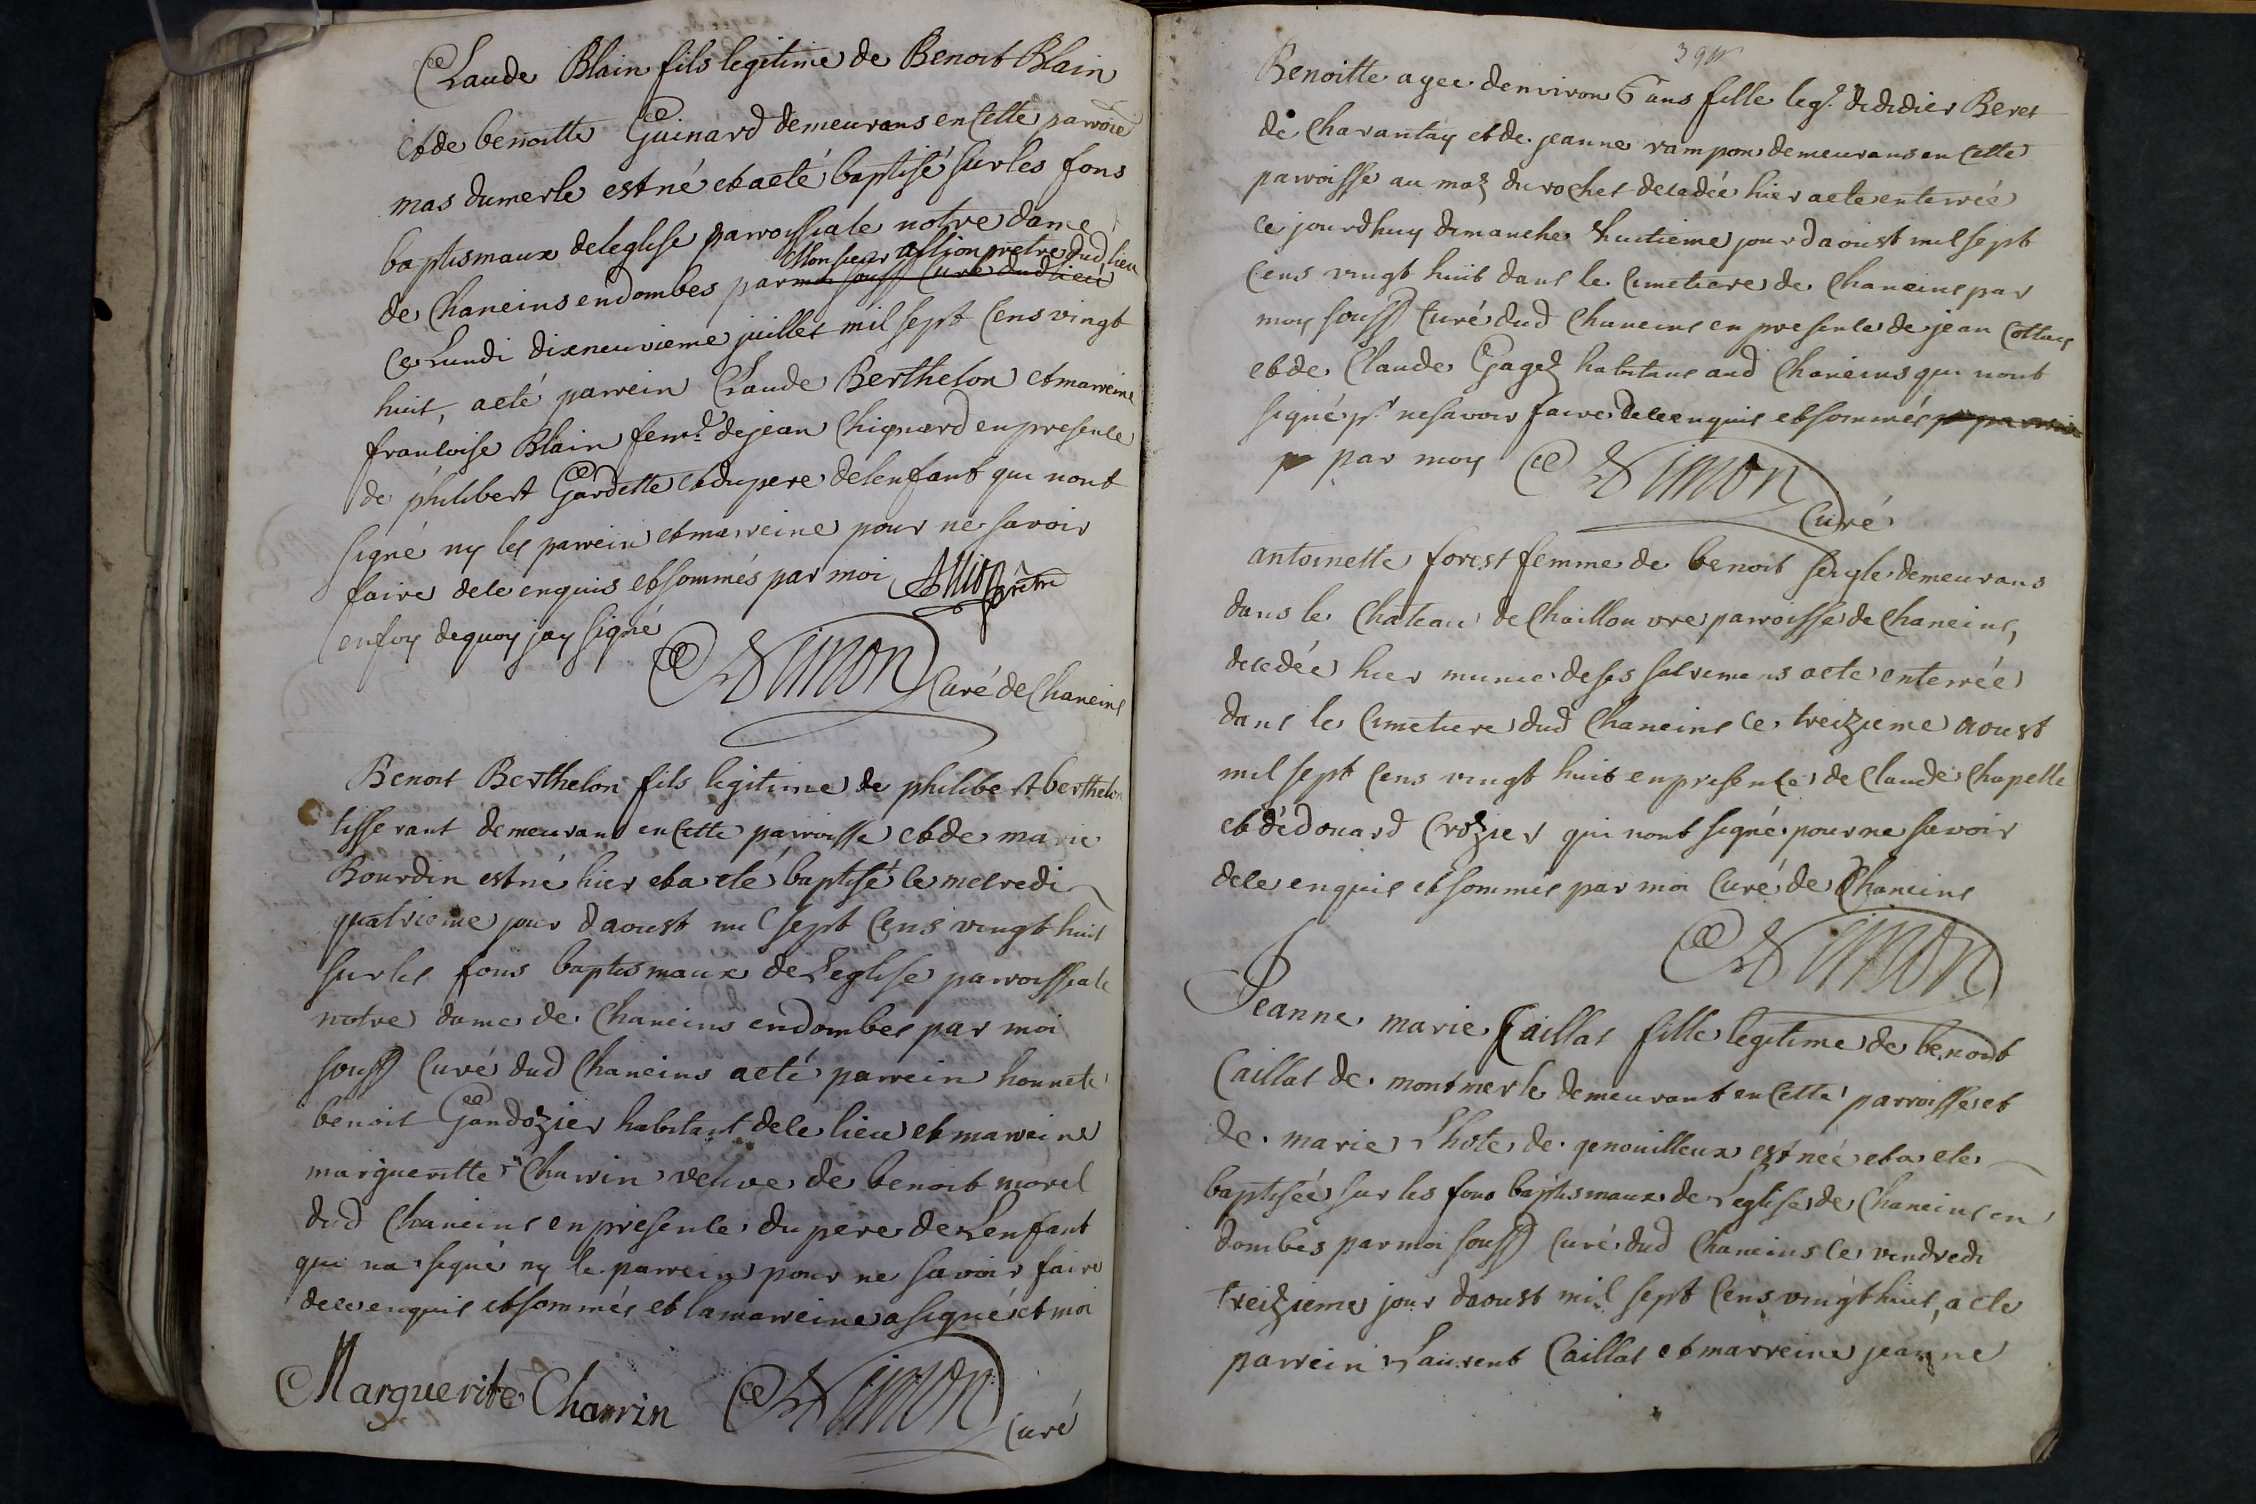 Claude Blain fils legitime de Benoit Blain
et de benoitte Guinard demeurans en cette parroice
mas dumerle est né et a eté baptisé sur les fons
baptismaux de leglise parroissiale notre dame
Monsieur Allion pretre dud lieu
de Chaneins en dombes par moi souss curé dud lieu
ce Lundi dixneuvieme juillet mil sept cens vingt
huit, a eté parrein Claude Berthelon et marreine
francoise Blain fem.e de jean Chignard en presence
de philibert Gardette et du pere de lenfant qui nont
signé ny les parrein et marreine pour ne savoir
faire de ce enquis et sommés par moi Allion prêtre
en foy de quoy jay signé
Simon Curé de Chaneins
Benoit Berthelon fils legitime de philibert berthelon
tisserant demeurant en cette parroisse et de marie
Bourdin est né hier et a eté baptisé ce mecredi
quatrieme jour daoust mil sept cens vingt huit
sur les fons baptismaux de Leglise parroissiale
notre dame de Chaneins en dombes par moi
souss Curé dud Chaneins a eté parrein honnete
benoit Gandozier habitant de ce lieu et marreine
margueritte Charrin veuve de benoit morel
dud Chaneins en presence du pere de Lenfant
qui na signé ny le parrein pour ne savoir faire
de ce enquis et sommés et la marreine a signé et moi
Marguerite Charrin Simon Curé
Benoitte agee denviron 6 ans fille leg.e de didier Beret
de Charantay et de jeanne rampon demeurans en cette
parroisse au maz du rochet decedée hier a ete enterrée
ce jourdhuy dimanche huitieme jour daoust mil sept
cens vingt huit dans le cimetiere de Chaneins par
moy souss Curé dud Chaneins en presence de jean
et de Claude Gagez habitans aud Chaneins qui nont
signé pr ne savoir faire de ce enquis et sommés
par moy Simon
Curé
antoinette forest femme de benoit demeurans
dans le Chateau de Chaillouvre parroisse de Chaneins,
decedée hier munie de ses sacremens a ete enterrée
dans le cimetiere dud Chaneins ce treizieme aoust
mil sept cens vingt huit en presence de claude Chapelle
et dédouard Crozier qui nont signé pour ne savoir
de ce enquis et sommés par moi Curé de Chaneins
Simon
Jeanne marie Caillat fille legitime de benoit
Caillat de montmerle demeurant en cette parroisse et
de marie Lhote de genouilleux est née et a ete
baptisée sur les fons baptismaux de Leglise de Chaneins en
dombes par moi souss Curé dud Chaneins ce vendredi
treizieme jour daoust mil sept cens vingt huit, a ete
parrein Laurent Caillat et marreine jeanne